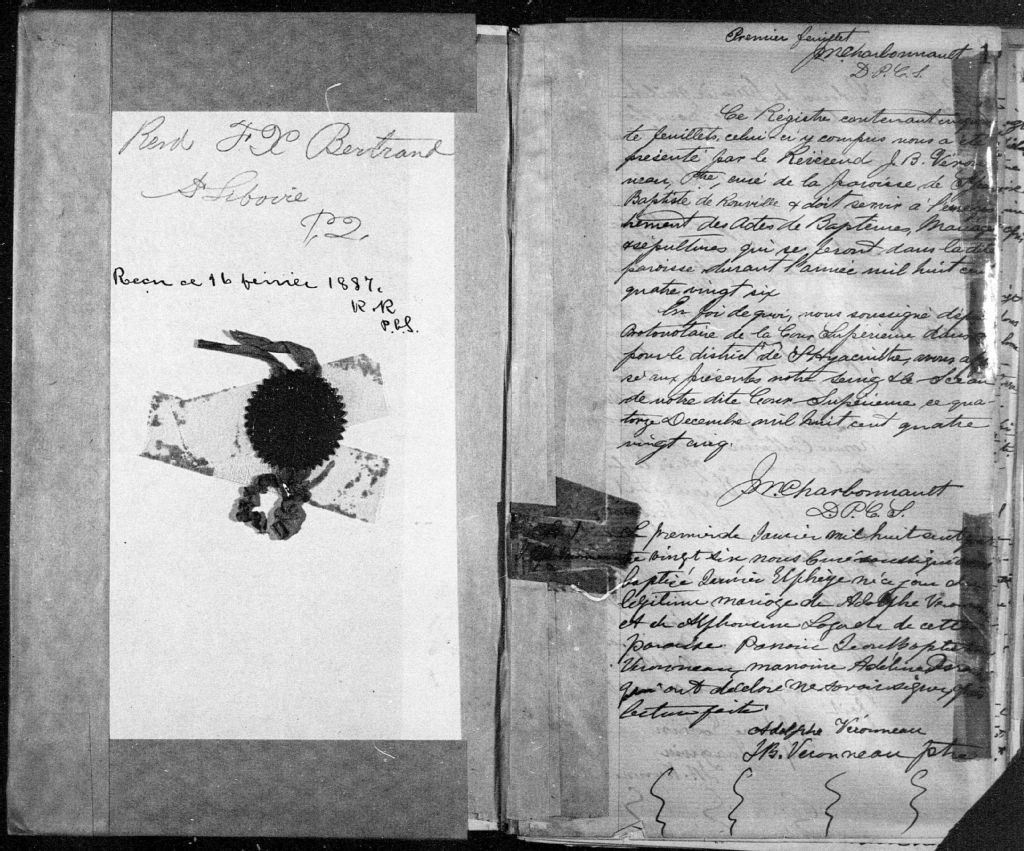 Revd F X Bertrand
St Liboire
P.Q.
Recu ce 16 février 1887.
R R
P.C.S.
Premier feuillet
J N Charbonnault
D.P.C.S.
1
Ce Régistre contenant cinquan
te feuillets, celui-ci y compris nous a été
présenté par le Révérend J. B. Véron
neau, Ptre, curé de la paroisse de St Jean
Baptiste de Rouville & doit servir à l'enregis
trement des Actes de Baptêmes, Mariages
& sépultures qui se feront dans la dite
paroisse durant l'année mil huit cent
quatre vingt six
En foi de quoi, nous soussigné dép
Protonotaire de la Cour Supérieure
pour le district de St Hyacinthe, avons ap
sé aux présentes notre seing & le Sceau
de notre dite Cour Supérieure ce qua-
torze Decembre mil huit cent quatre
vingt cinq.
J N Charbonnault
D.P.C.S.
B. 1
Le premier de Janvier mil huit cent
vingt six nous Curé soussigné avons
baptisé Elphège né ce jour du
légitime mariage de Adolphe Véronneau
et de Alphonsine de cette
paroisse. Parrain Jean Baptiste
Véronneau, marraine Adeline
qui ont déclaré ne savoir signer,
lecture faite.
Adolphe Véronneau
J.B. Véronneau ptre